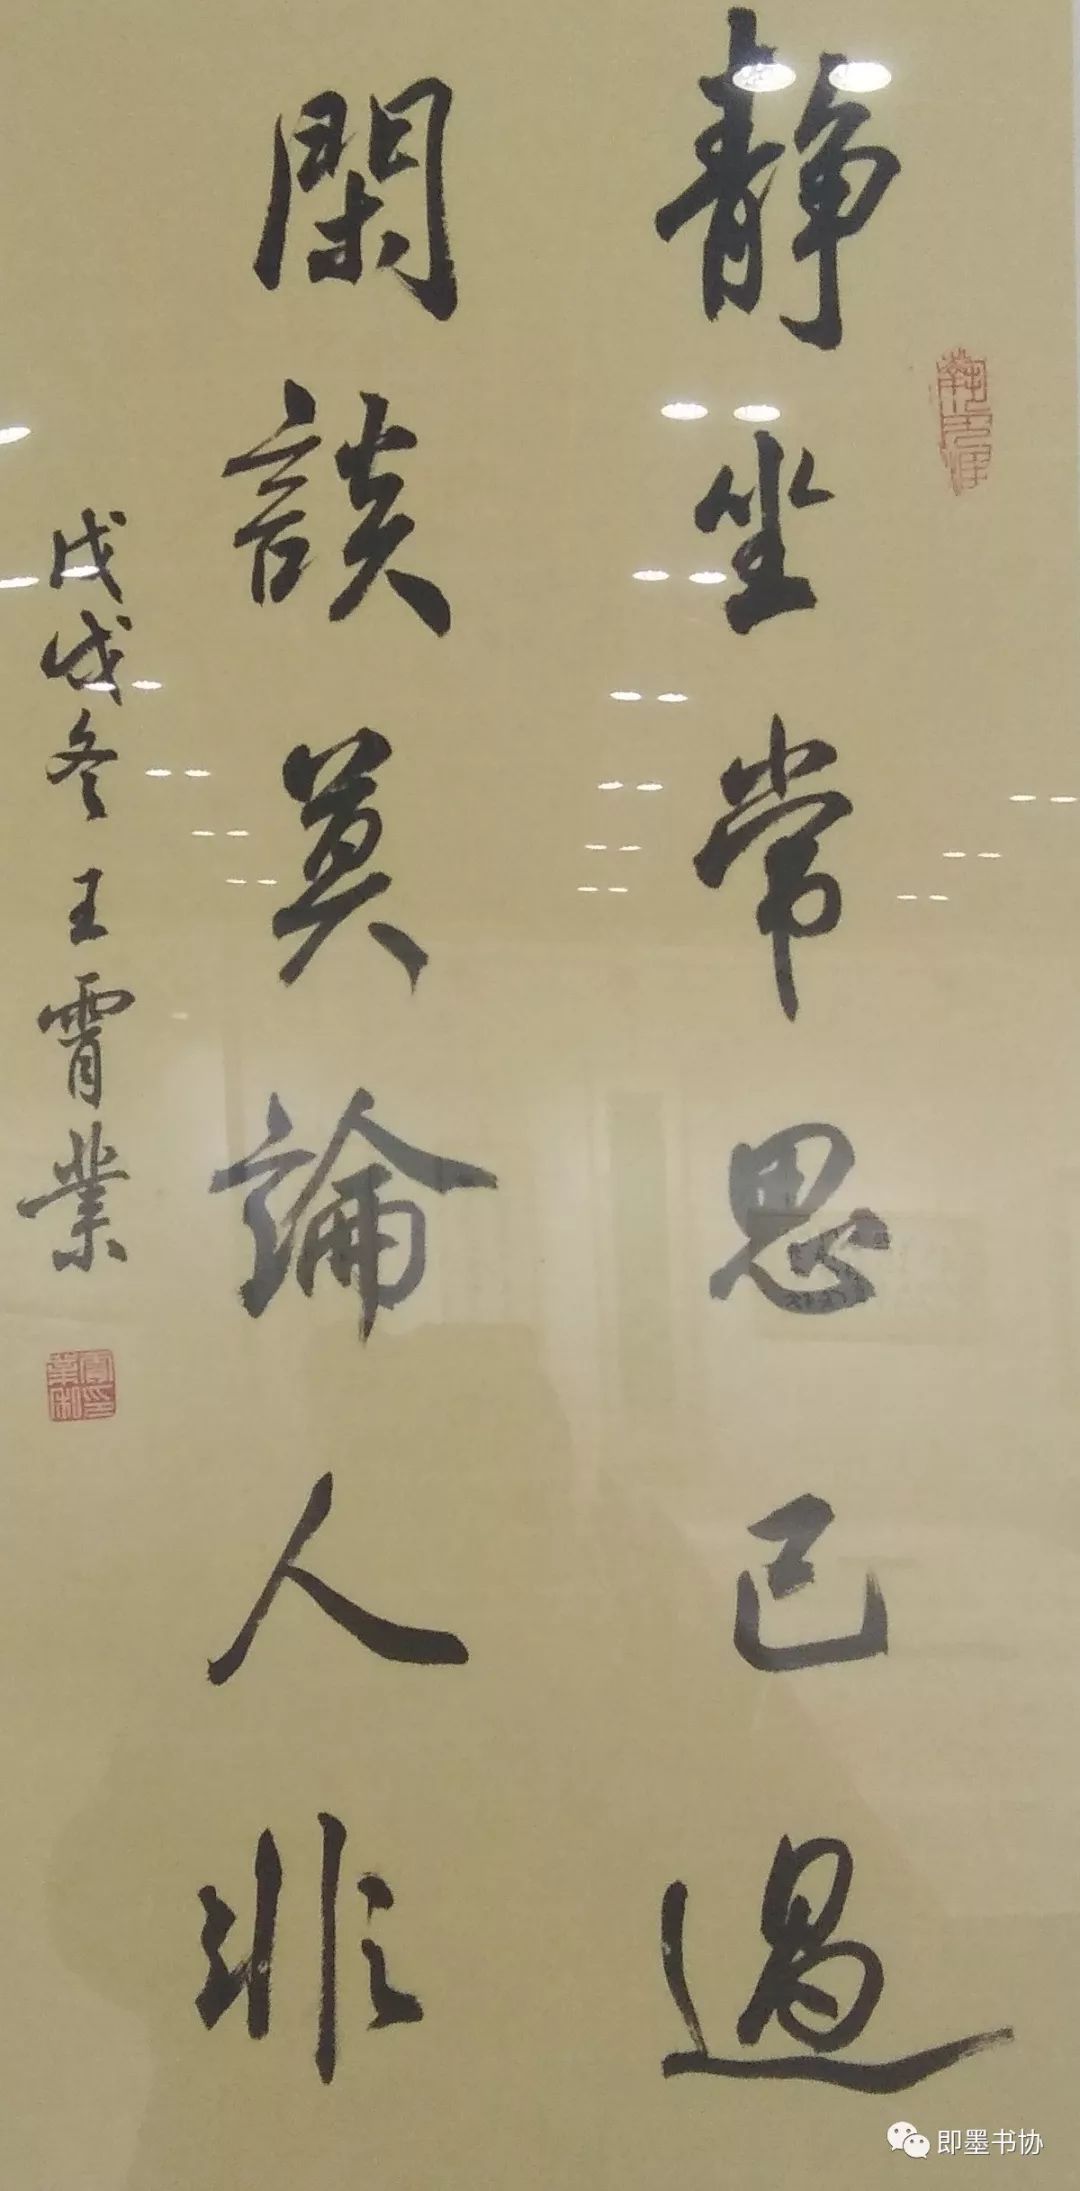 静坐常思己過
閑談莫論人非
戊戌冬王霄業
即墨书协